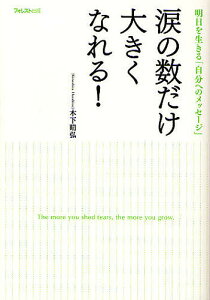 フォレスト出版
明日を生きる「自分へのメッセージ」
涙の数だけ
大きく
なれる!
木下晴弘
Kinoshita Haruhiro
The more you shed tears, the more you grow.